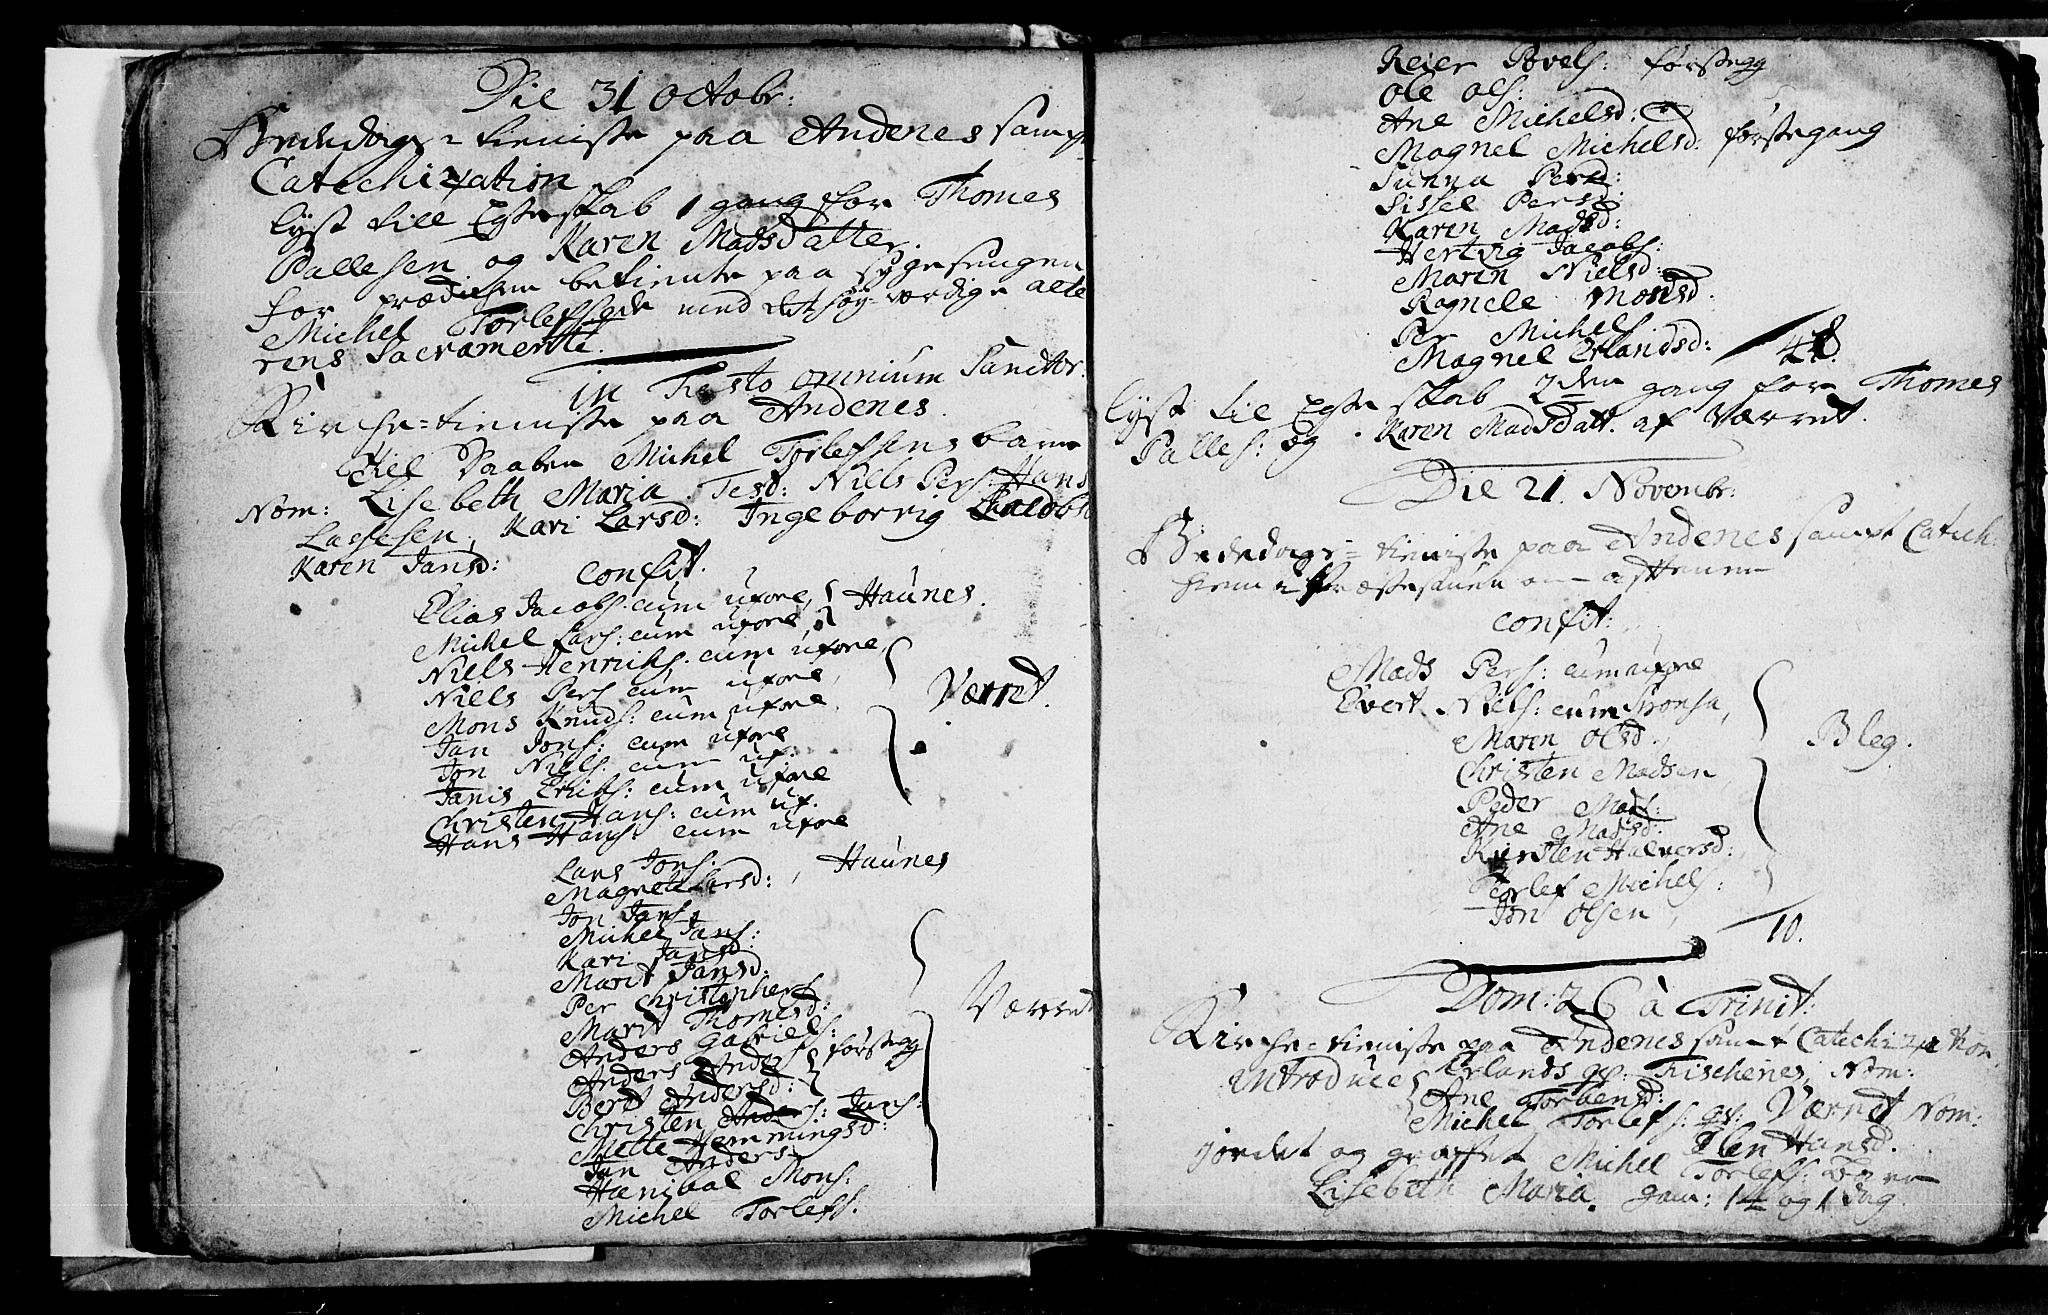 Die 31 Octobr:
Bededags=tieniste paa Andenes sampt
Catechization
lyst till Egteskab 1 gang for Thomes
Pallesen og Karen Madsdatter.
for prædichen betiente paa sygesengen
Michel Torlefs med det høy-værdige alte
rens Sacramente.
in Festo omnium Sanctor.
Kirche=tieniste paa Andenes.
til Daaben Michel Torlefsens barn
Nom: Lisebeth Maria. Test: Niels Pers: Hans
Lassesen, Kari Larsd: Ingeborrig
Karen Jansd:
Confit.
Elias Jacobs: cum uxore, } Haunes.
Michel Lars: cum uxore,
Niels Henriks: cum uxore,
Niels Pers cum uxore,
Mons Knuds: cum uxore, Værret.
Jan Jons: cum uxore
Jon Niels: cum ux.
Janis Eriks: cum uxore
Christen Hans: cum ux.
Hans Hans: cum uxore
Lars Jons:
Magnete Larsd: , Haunes
Jon Jans:
Michel Jans:
Kari Jansd:
Marit Jansd:
Per Christophers
Marit Thomesd: Værret
Anders Gabriels:
Anders Anders } førstegg
Berit Andersd:
Christen Jans:
Mette Hemmingsd:
Jan Anders:
Hanibal Mons:
Michel Torlefs:
Reier Povels: førstegg
Ole Ols:
Ane Michelsd:
Magnel Michelsd: førstegang
Sunna Persd:
Sissel Persd:
Karen Madsd:
Hertvig Jacobs:
Maren Nielsd:
Ragnele Monsd:
Per Michels
Magnel Erlandsd: 48.
lyst til Egteskab 2den gang for Thomes
Palles: og Karen Madsdatt. af Værret.
Die 21. Novembr:
Bededags=tieniste paa Andenes sampt Catech:
Confit:
Mads Pers: cum uxore
Evert Niels: cum Sponsa,
Maren Olsd. , Bleg.
Christen Madsen,
Peder Mads:
Ane Madsd:
Kirsten Halversd:
Torlef Michels:
Jon Olsen,
10.
Dom: 26 à Trinit:
Kirche=tieniste paa Andenes sampt Catechization
introduce { Erlands Fischenes, Nom:
Ane Torbensd:
Michel Torlefs: Værret Nom:
Elen Hansd.
jordet og graffet Michel Torlefs: barn
Lisebeth Maria. gam: 14 og 1 dag